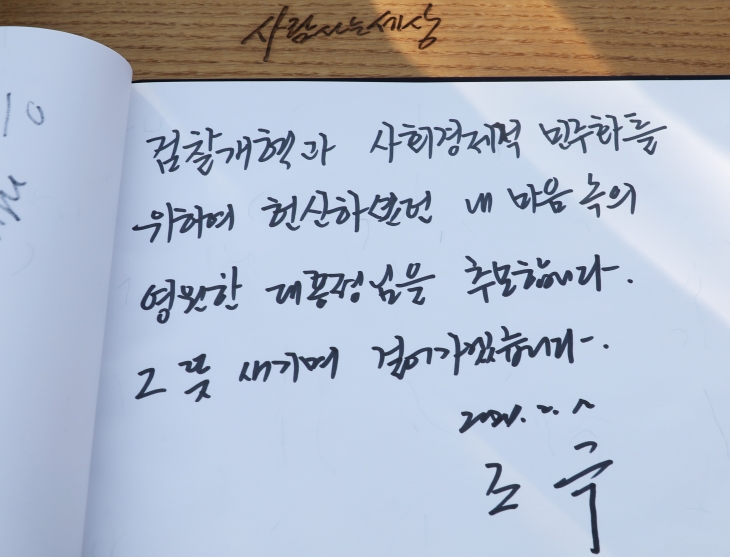 사람사는세상
10
검찰개혁과 사회경제적 민주화를
위하여 헌신하셨던 내 마음 속의
영원한 대통령님을 추모합니다.
그 뜻 새기며 걸어가겠습니다.
조국